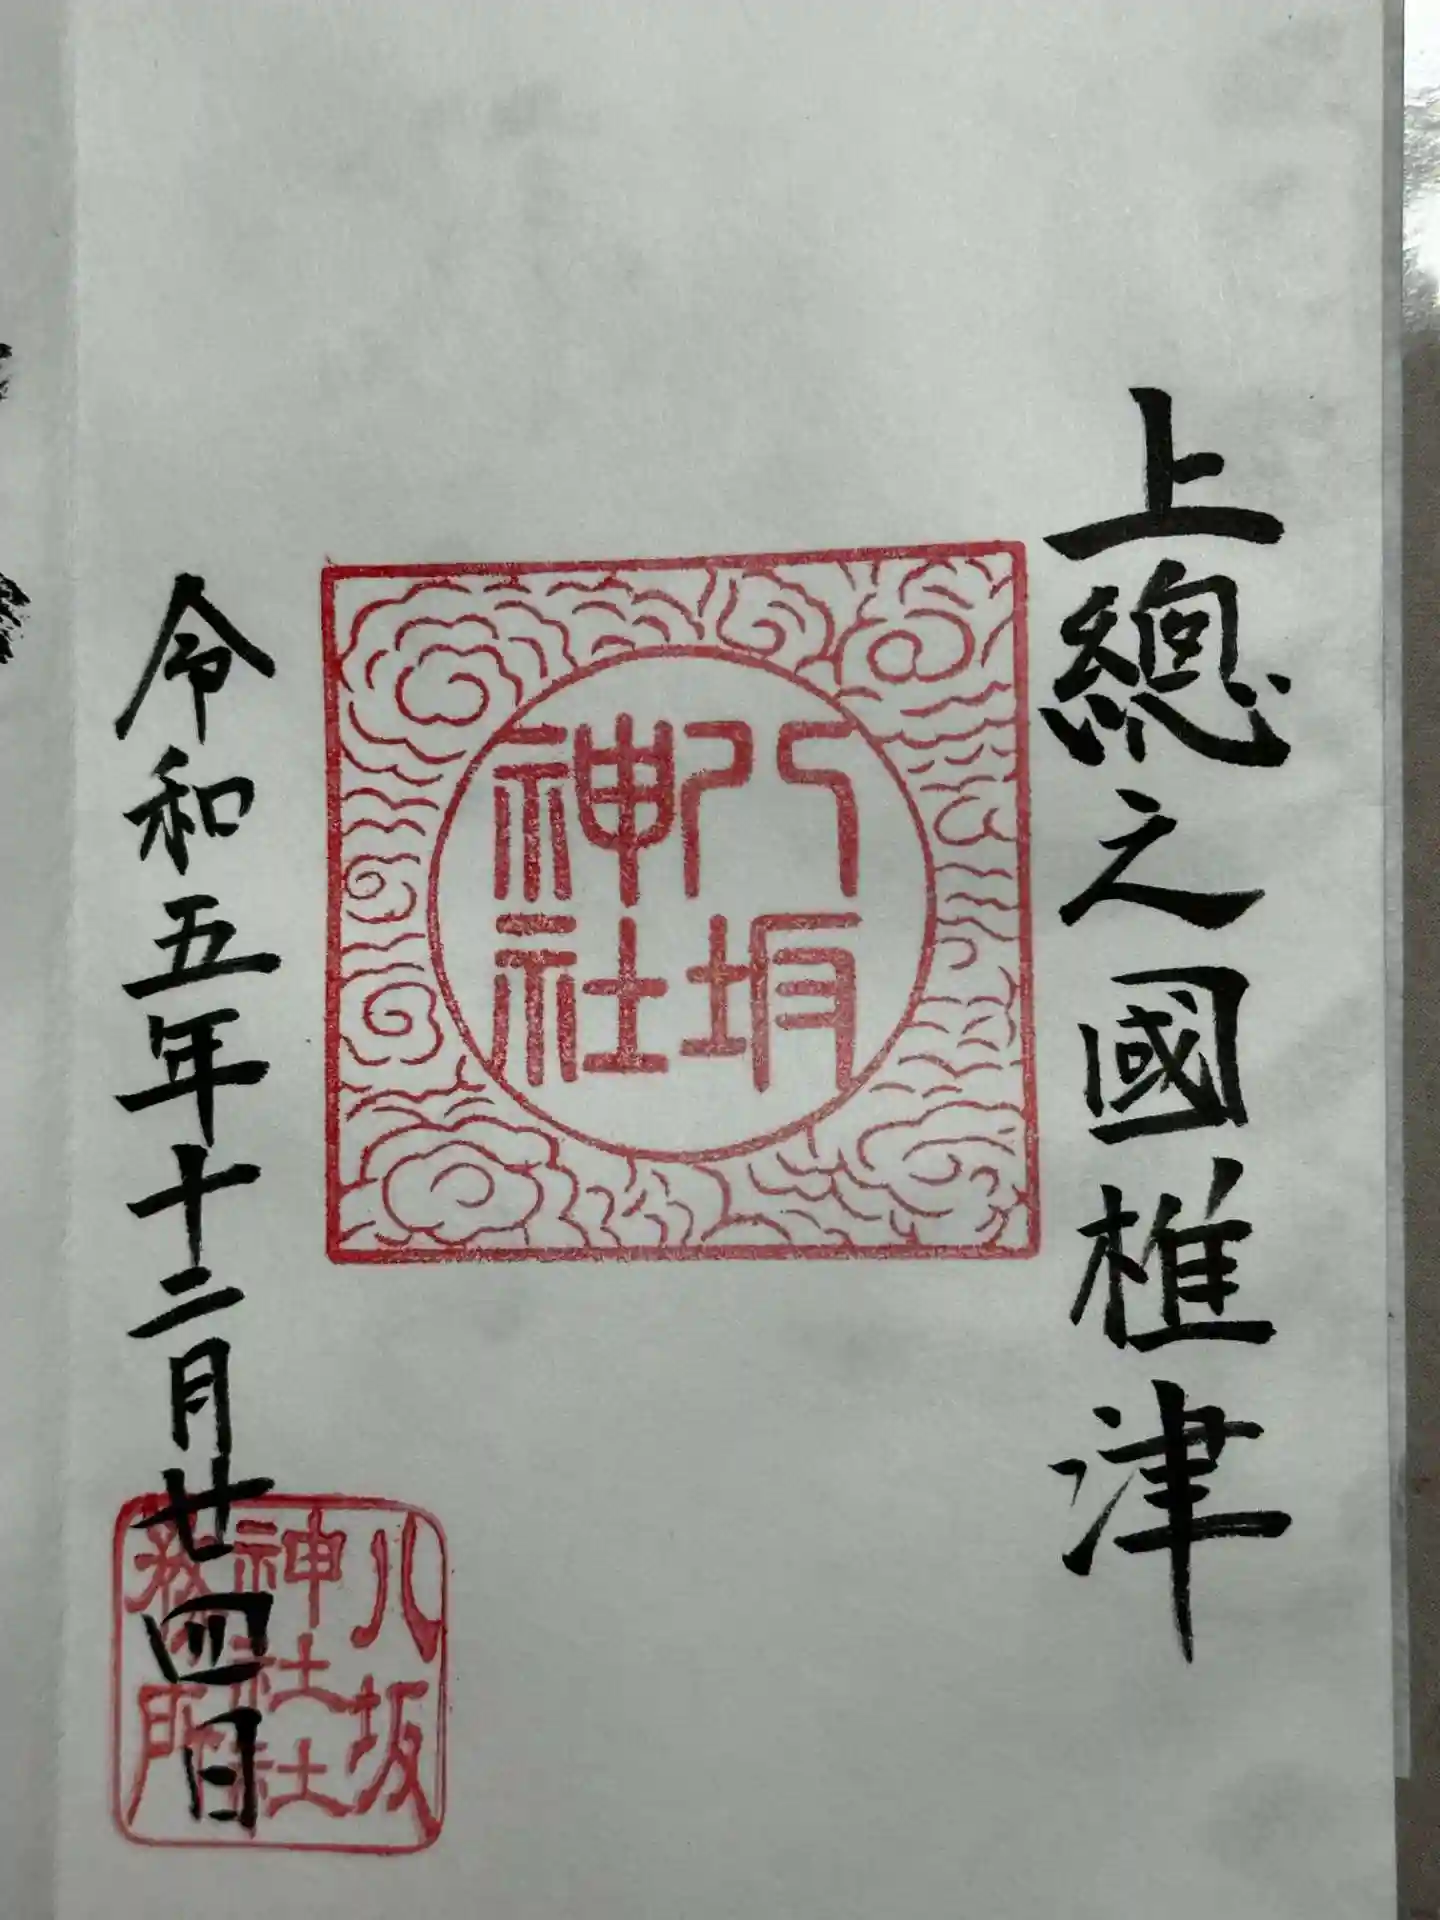 上總之國椎津
八坂
神社
八坂
神社社
務所
令和五年十二月廿四日